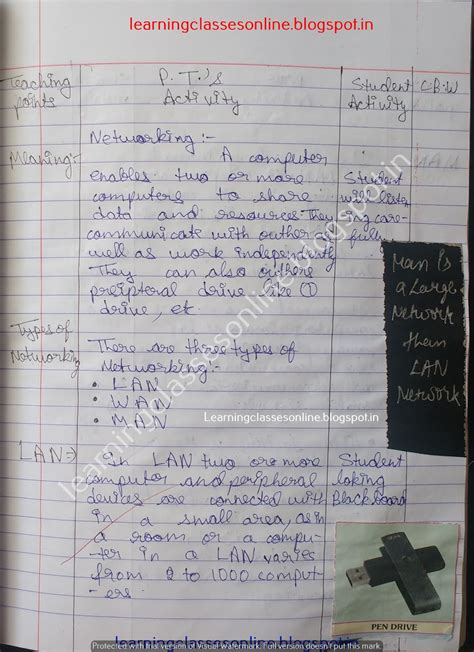 learningclassesonline.blogspot.in
Teaching points
P.T.'s Activity
Student Activity
C.B.W
Networking :-
Meaning:-
A computer
enables two or more
computers to share
data and resources. They
communicate with outher as
well as work independently
They can also outhers
preipteral drive like ①
drive, etc.
Student
will listen
ing care-
fully
Man Is
a Large
Network
them
LAN
Network
Types of
Networking
There are three types of
Networking:-
• LAN
• WAN
• MAN
Learningclassesonline.blogspot.in
LAN⇒
In LAN two or more
computer and peripheral
devices are connected with
in a small area, as in
a room or a compu-
ter in a LAN varies
from 2 to 1000 comput-
ers.
Student
loking
Blackboard
PEN DRIVE
learningclassesonline.blogspot.in
learningclassesonline.blogspot.in
Protected with trial version of Visual Watermark. Full version doesn't put this mark.
learningclassesonline.blogspot.in